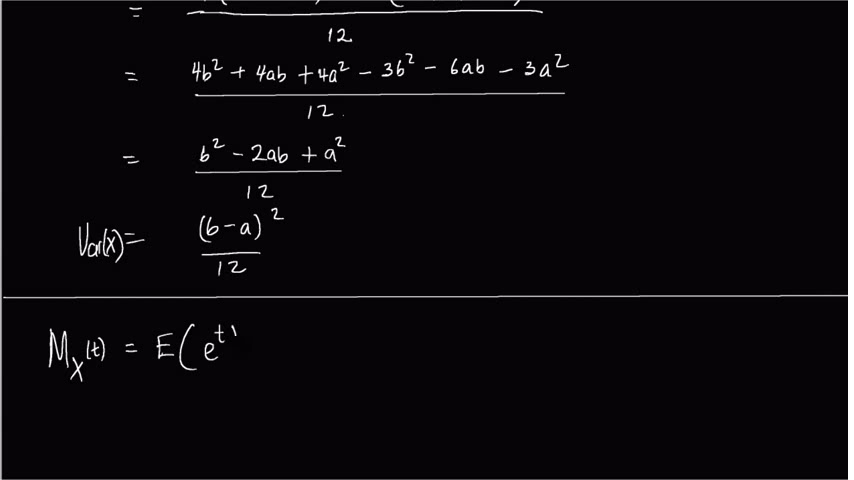 =
12
= 4b² + 4ab + 4a² − 3b² − 6ab − 3a²
12
= b² − 2ab + a²
12
Var(x) = (b − a)²
12
M_X(t) = E(e^t